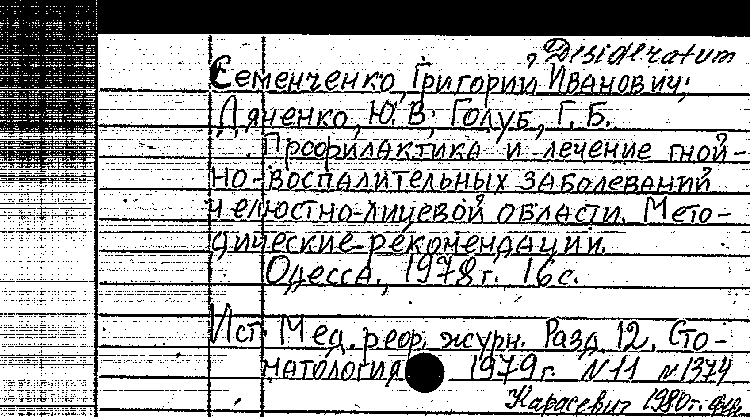 Desideratum
Семенченко, Григорий Иванович;
Дяненко, Ю. В; Голуб, Г. Б.
Профилактика и лечение гной-
но-воспалительных заболеваний
челюстно-лицевой области. Мето-
дические рекомендации.
Одесса, 1978г. 16с.
Ист. Мед. реф. журн. Разд 12. Сто-
матология 1979г. N 11 n 1374
Карасевич 1980г.